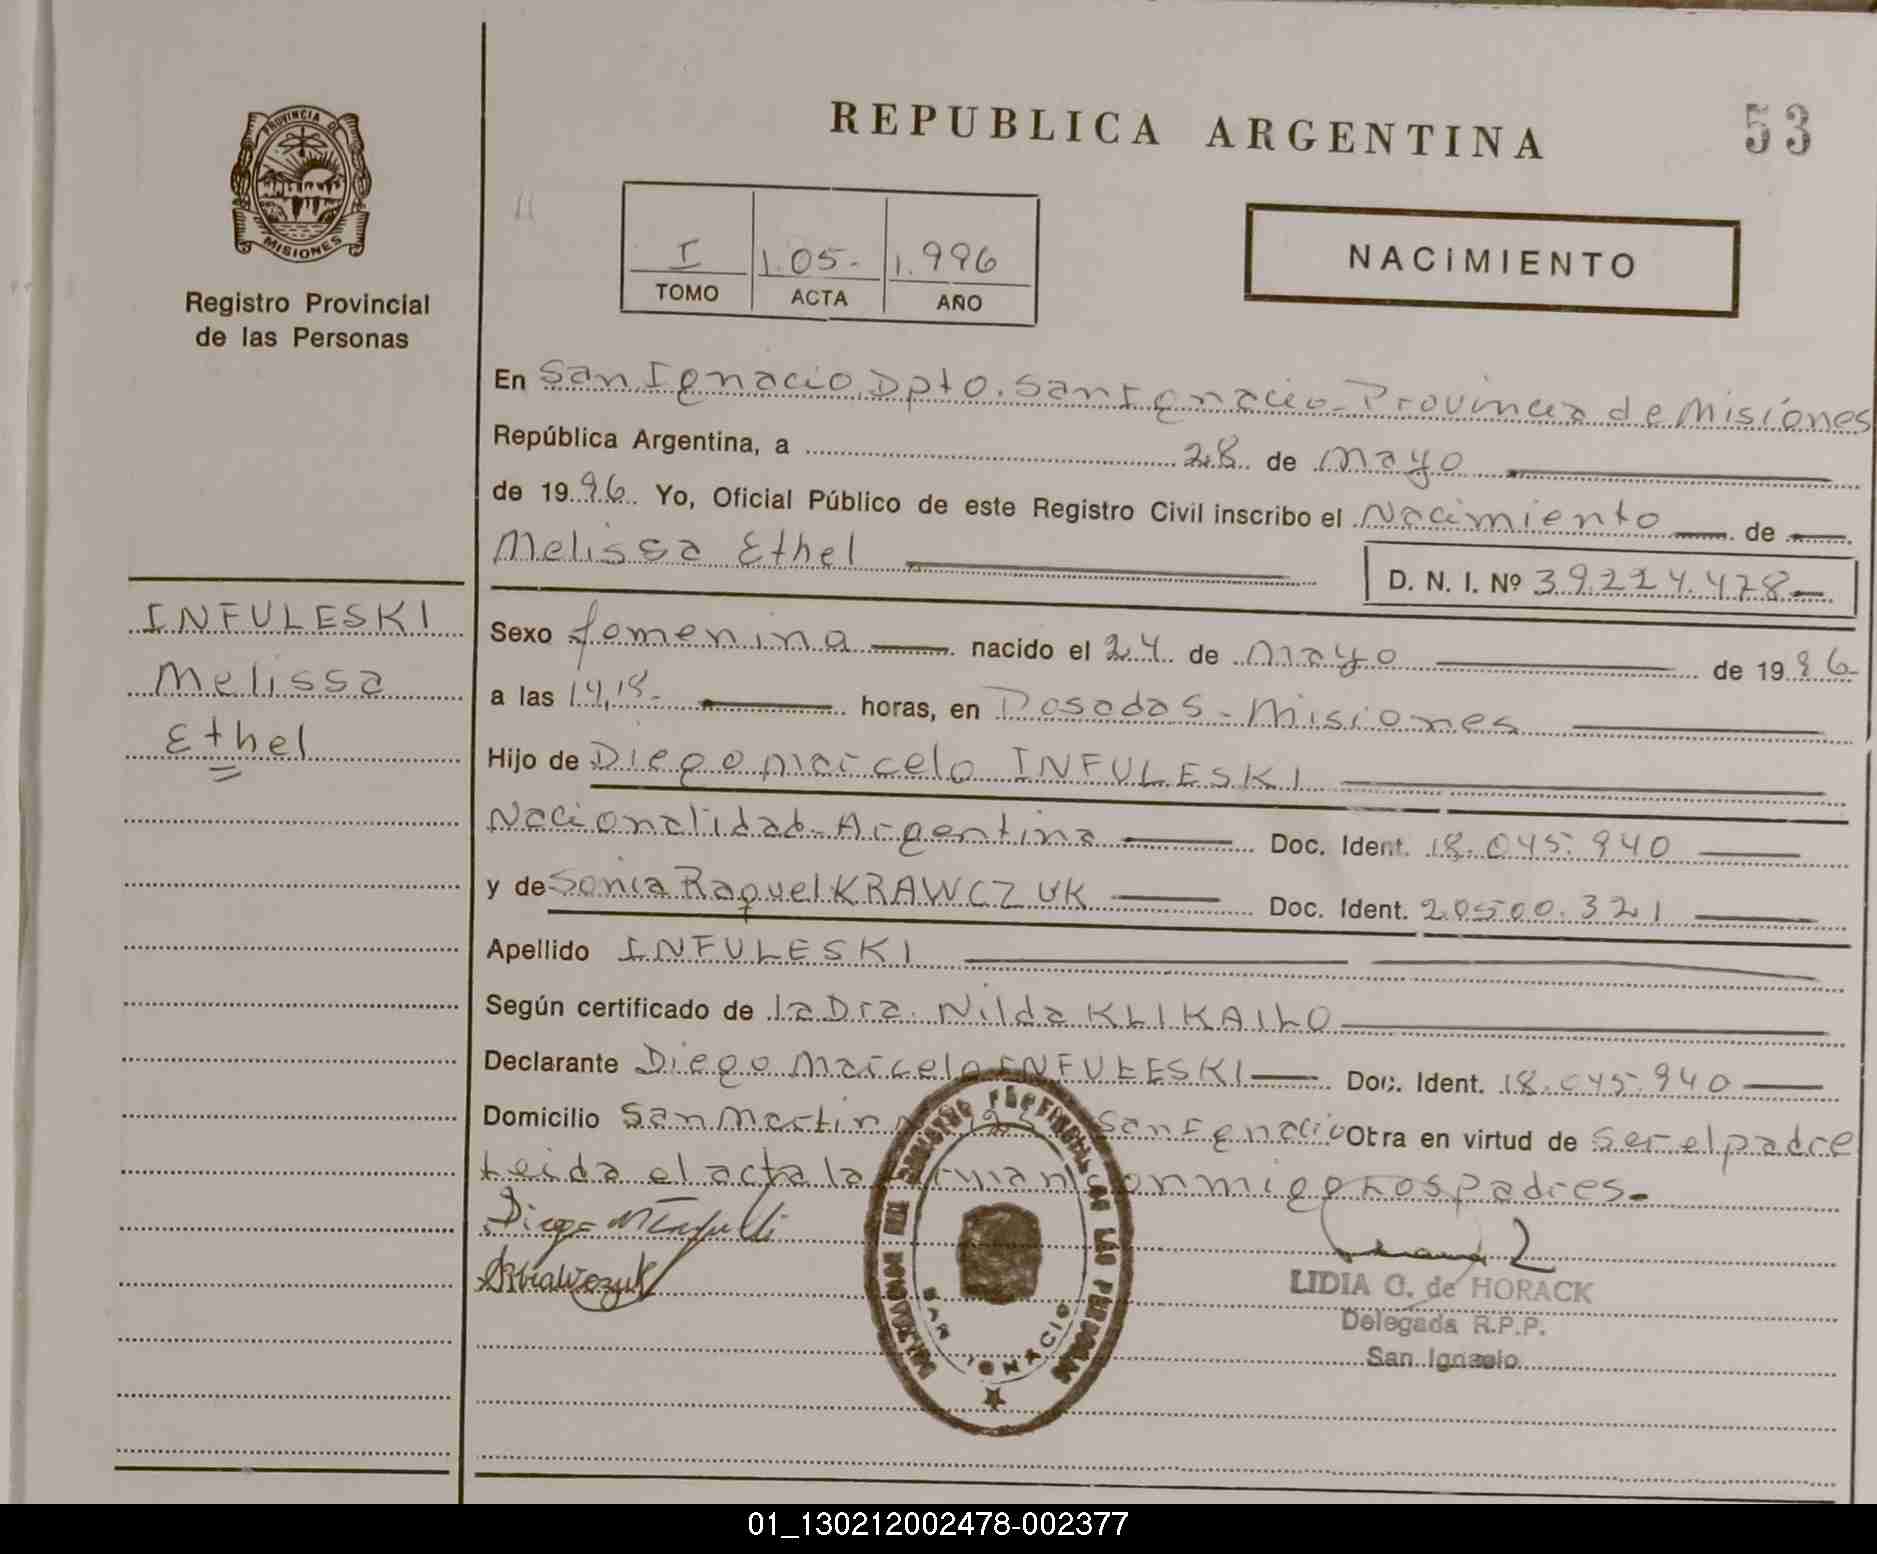 PROVINCIA DE
MISIONES
Registro Provincial
de las Personas
REPUBLICA ARGENTINA
53
I
TOMO
105-
ACTA
1.996
AÑO
NACIMIENTO
En San Ignacio Dpto. San Ignacio - Provincia de Misiones
República Argentina, a 28 de Mayo
de 1996 Yo, Oficial Público de este Registro Civil inscribo el Nacimiento de
Melissa Ethel
D. N. I. Nº 39.224.478
INFULESKI
Melissa
Ethel
Sexo femenina nacido el 24 de Mayo de 1996
a las 14,18- horas, en Posadas - Misiones
Hijo de Diego Marcelo INFULESKI
Nacionalidad - Argentina Doc. Ident. 18.045.940
y de Sonia Raquel KRAWCZUK Doc. Ident. 20500.321
Apellido INFULESKI
Según certificado de la Dra. Nilda KLIKAILO
Declarante Diego Marcelo INFULESKI Doc. Ident. 18.045.940
Domicilio San Martin San Ignacio Otra en virtud de ser el padre
Leida el acta la firman conmigo los padres.
LIDIA G. de HORACK
Delegada R.P.P.
San Ignacio
SAN IGNACIO
01_130212002478-002377